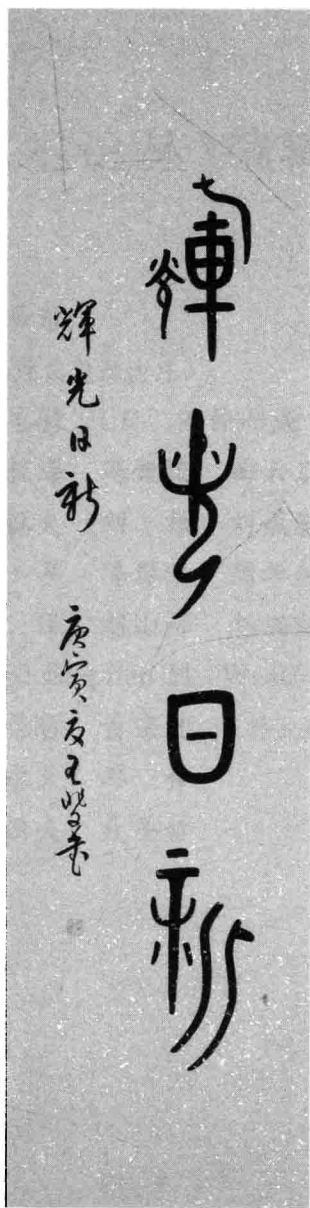 輝光日新
輝光日新 庚寅夏王書